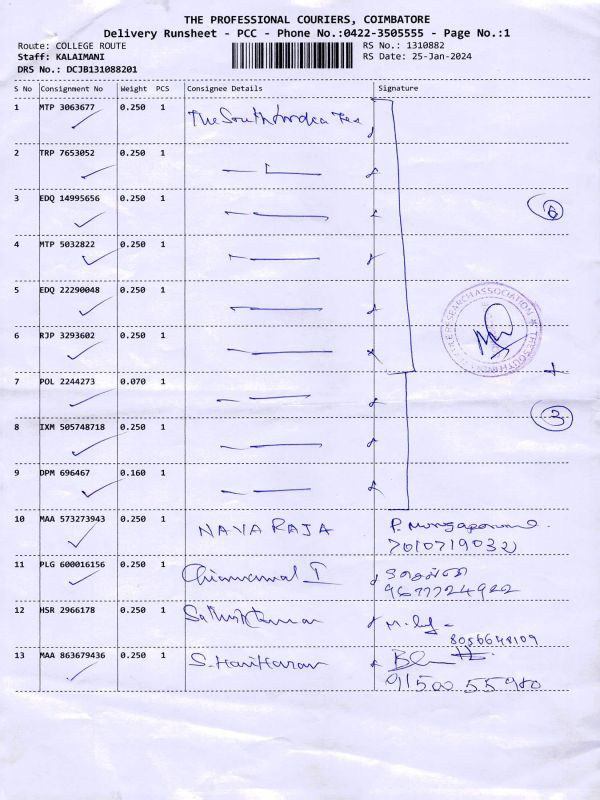 THE PROFESSIONAL COURIERS, COIMBATORE
Delivery Runsheet - PCC - Phone No.:0422-3505555 - Page No.:1
Route: COLLEGE ROUTE RS No.: 1310882
Staff: KALAIMANI RS Date: 25-Jan-2024
DRS No.: DCJB131088201
S No Consignment No Weight PCS Consignee Details Signature
1 MTP 3063677 0.250 1 The South India Tea
2 TRP 7653052 0.250 1
3 EDQ 14995656 0.250 1
6
4 MTP 5032822 0.250 1
5 EDQ 22290048 0.250 1
6 RJP 3293602 0.250 1
7 POL 2244273 0.070 1
+
8 IXM 505748718 0.250 1
3
9 DPM 696467 0.160 1
10 MAA 573273943 0.250 1 NAVA RAJA P.
7010719032
11 PLG 600016156 0.250 1 I
9677724922
12 HSR 2966178 0.250 1
8056648109
13 MAA 863679436 0.250 1 S. Hariharan
91500 55980